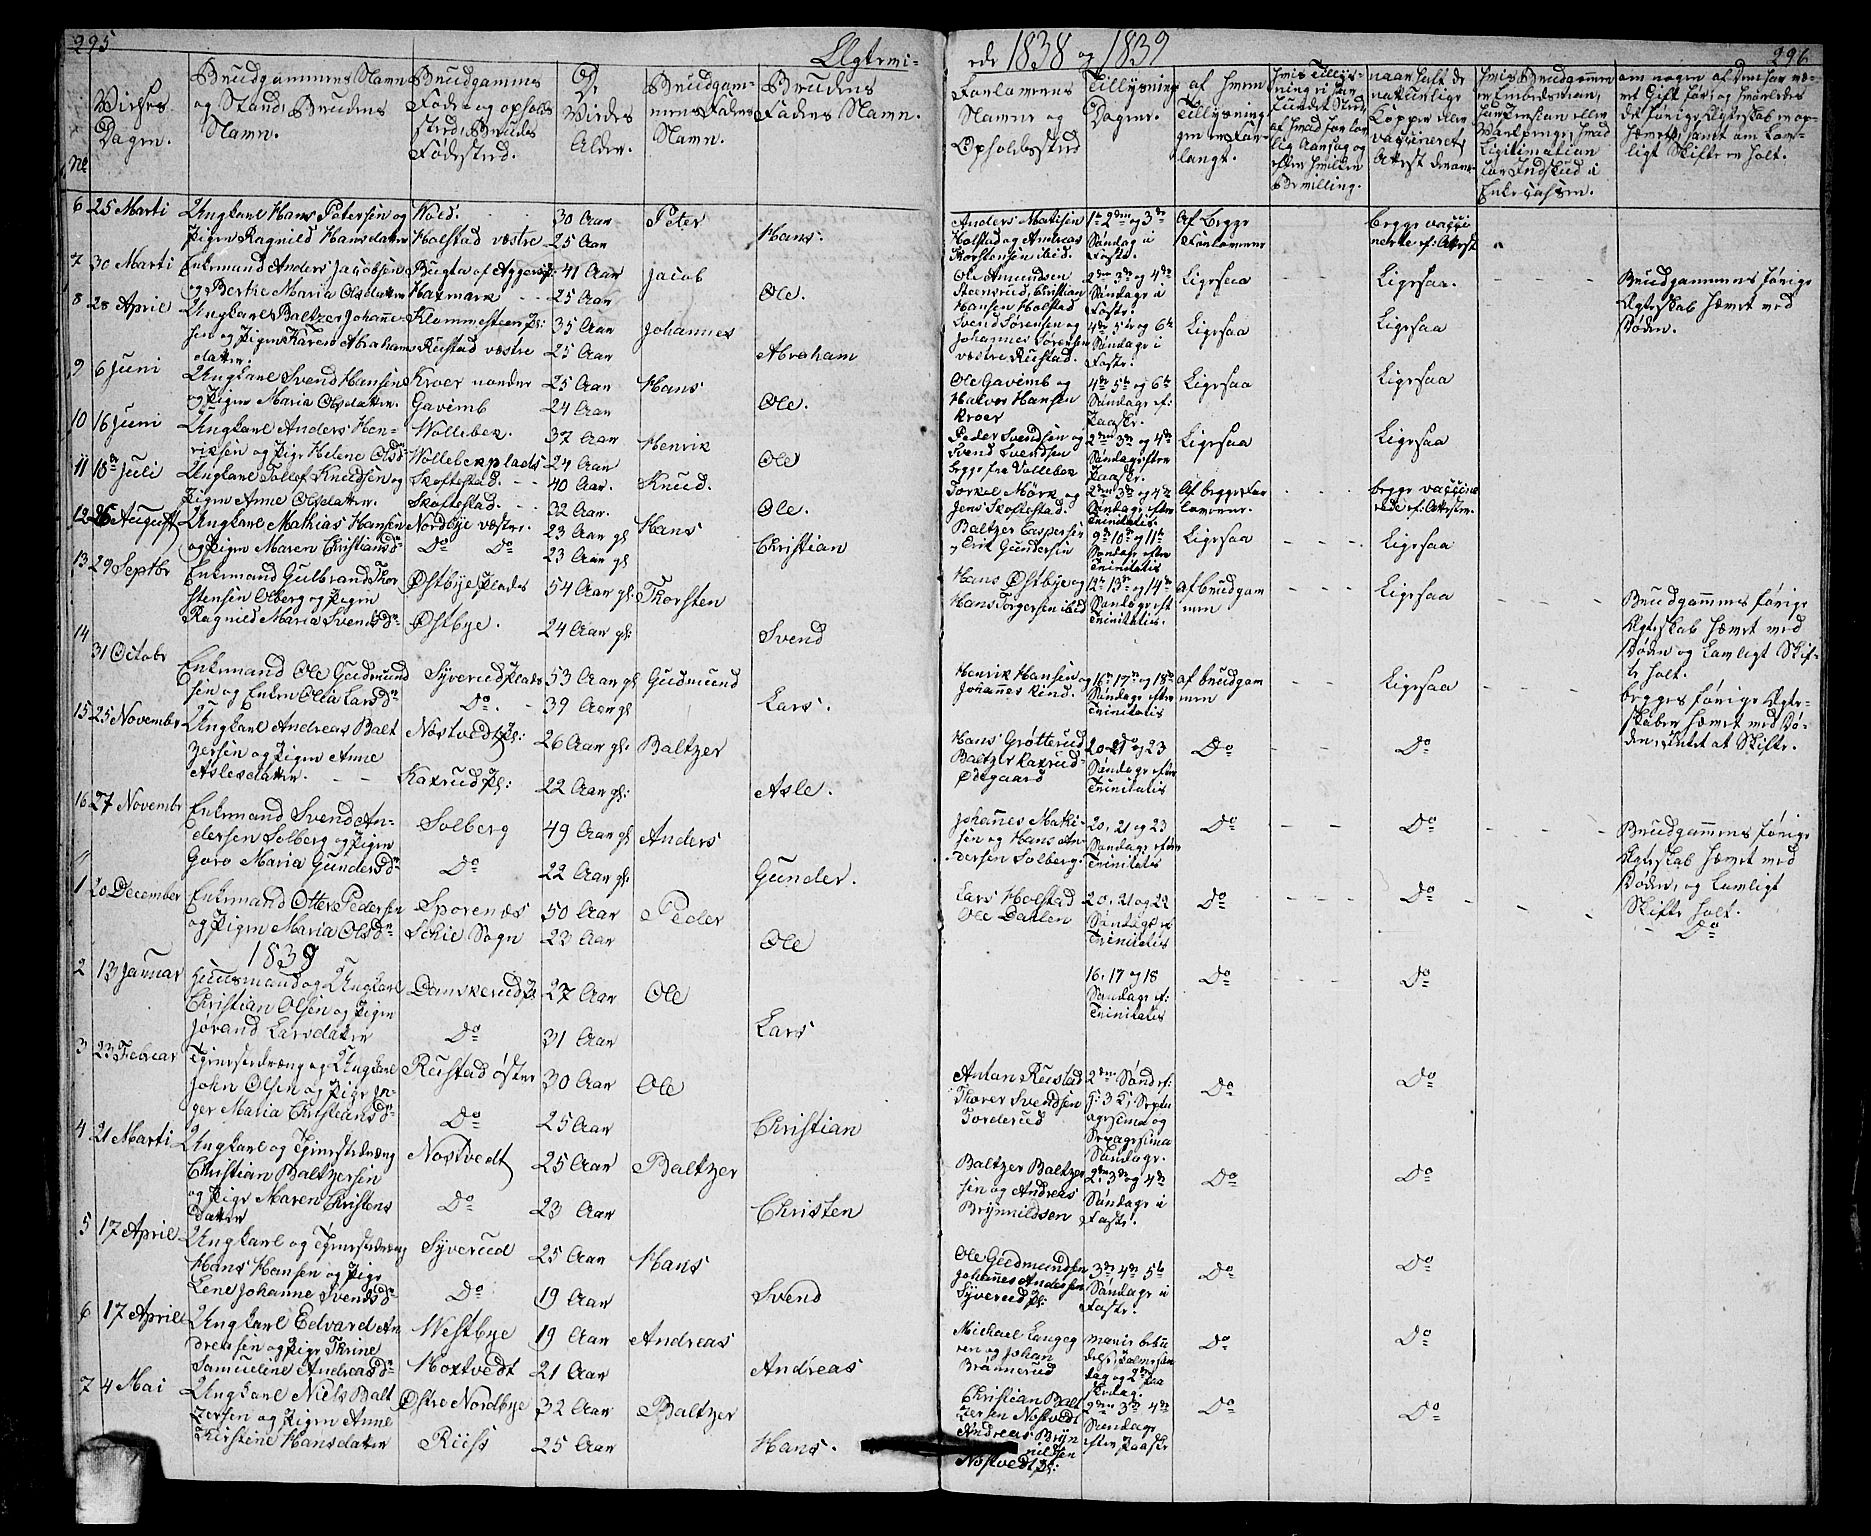 295
Ægtevi-
ede 1838 og 1839
296
No
Vielses
Dagen.
Brudgommens Navn
og Stand; Brudens
Navn.
Brudgommens
Føde og opholds
sted, Brudens
Fødested.
De
Viedes
Alder.
Brudgom-
mens Faders
Navn.
Brudens
Faders Navn.
Forlovernes
Navne og
Opholdssted
Tillysnings
Dagene.
af hvem
Tillysnin-
gen er for-
langt.
naar havt de
naturlige
Kopper eller
vaccineret,
Attest derom
6 25 Marti Ungkarl Hans Petersen og
Pigen Ragnild Hansdatter
Kold.
Holstad vestre
30 Aar
25 Aar
Peter
Hans.
Anders Matisen
Holstad og Andreas
Thorstensen ibid.
1te 2den og 3de
Søndag i
Faste.
Af begge
Forloverne
begge vacci
nerte ef: Attest
7 30 Marti Enkemand Anders Jacobsen
og Berthe Maria Olsdatter
41 Aar
25 Aar
Jacob
Ole.
Ole Amundsen
Steensrud, Christian
Hansen Holstad
2den 3de og 4de
Søndag i
Faste.
Ligesaa
Ligesaa.
Brudgommens forige
Ægteskab hævet ved
Døden.
8 28 April Ungkarl Baltzer Johanne-
sen og Pigen Karen Abrahams
datter.
Klommesteen Pl:
Rustad vestre
35 Aar
25 Aar
Johannes
Abraham
Svend Sørensen og
Johannes Sørensen
vestre Rustad.
4de 5te og 6te
Søndag i
Faste.
Ligesaa
Ligesaa
9 6 Juni Ungkarl Svend Hansen
og Pigen Maria Olsdatter.
Kroer nordre
Gavimb
25 Aar
24 Aar
Hans
Ole.
Ole Gavimb og
Halvor Hansen
Kroer
4de 5te og 6te
Søndag ef:
Paaske.
Ligesaa
Ligesaa
10 16 Juni Ungkarl Anders Hen-
riksen og Pige Helene Olsdr
Wollebek.
Wollebekplads
37 Aar
24 Aar
Henrik
Ole
Peder Svendsen og
Svend Svendsen
begge fra Vollebek
2den 3de og 4de
Søndag efter
Paaske.
Ligesaa
Ligesaa
11 18de Juli Ungkarl Tollef Knudsen og
Pigen Anne Olsdatter.
Skoftestad.
Skoftestad.
40 Aar.
32 Aar.
Knud.
Ole.
Torkel Mørk og
Jens Skoftestad.
2den 3de og 4de
Søndag efter
Trinitatis.
Af begge For
loverne.
begge vaccine
rede ef: Attester.
12 26 August Ungkarl Mathias Hansen
og Pigen Maren Christiansdr
Nordbye vestre.
Do Do
23 Aar gl
23 Aar gl
Hans
Christian
Baltzer Caspersen
og Erik Gundersen
9de 10de og 11te
Søndag efter
Trinitatis
Ligesaa
Ligesaa
13 29 Septbr Enkemand Gulbrand Thor
stensen Olberg og Pigen
Ragnild Maria Svendsdr
Østbye Plads
Østbye.
54 Aar gl.
24 Aar gl:
Thorsten
Svend
Hans Østbye og
Hans Torgersen ibid
12te 13de og 14de
Søndag eft
Trinitatis.
af brudgom
men
Ligesaa
Brudgommens forige
Ægteskab hævet ved
Døden og Lovligt Skif-
te holt.
14 31 Octobr Enkemand Ole Gudmund
sen og Enken Ollia Larsdr
Syverud Plads
Do.
53 Aar gl
39 Aar gl
Gudmund
Lars.
Henrik Hansen og
Johannes Rud.
16de 17de og 18de
Søndag efter
Trinitatis
af brudgom
men
Ligesaa
begges forige Ægte-
skaber hævet ved Dø-
den, Intet at Skifte.
15 25 Novembr Ungkarl Andreas Balt
zersen og Pigen Anne
Aslesdatter.
Nostvedt Pl:
Kaxrud Pl:
26 Aar gl:
22 Aar gl:
Baltzer
Asle.
Hans Grøtterud
Baltzer Kaxrud
Ødegaard
20 21 og 23
Søndag efter
Trinitatis
Do
Do
16 27 Novembr Enkemand Svend An-
dersen Solberg og Pigen
Goro Maria Gundersdr
Solberg
Do
49 Aar gl
22 Aar gl:
Anders
Gunder.
Johannes Mati-
sen og Hans An-
dersen Solberg.
20, 21 og 23
Søndag efter
Trinitatis
Do
Do
Brudgommens forige
Ægteskab hævet ved
Døden, og Lovligt
Skifte holt.
1 20 December Enkemand Otter Pedersen
og Pigen Maria Olsdr
Sporenæs
Schie Sogn
50 Aar
23 Aar
Peder
Ole
Lars Holstad
Ole Dahlen
20, 21 og 22
Søndag ef
Trinitatis
Do
Do
Do
1839
2 13 Januar Huusmand og Ungkarl
Christian Olsen og Pigen
Jorand Larsdatter
Danskerud Pl
Do
27 Aar
31 Aar
Ole
Lars
16, 17 og 18
Søndag ef:
Trinitatis
Do
Do
3 23 Februar Tjenestedreng og Ungkarl
John Olsen og Pige In-
ger Maria Christiansdr
Rustad østre
Do
30 Aar
25 Aar
Ole
Christian
Antan Rustad
Thorer Svendsen
Torderud
2den Sønd ef:
H: 3 K; Septu
agesima og
Sexagesima
Søndag.
Do
Do
4 21 Marti Ungkarl og Tjenestedreng
Christian Baltzersen
og Pige Maren Christens
datter
Nostvedt
Do
25 Aar
23 Aar
Baltzer
Christen
Baltzer Baltzer
sen og Andreas
Brynnildsen
2den 3de og 4de
Søndag i
Faste.
Do
Do
5 17 April Ungkarl og Tjenestedreng
Hans Hansen og Pige
Lene Johanne Svendsdr
Syverud
Do
25 Aar
19 Aar
Hans
Svend
Ole Gudmundsen
Johannes Andersen
Syverud Pl:
3de 4de 5te
Søndag i
Faste.
Do
Do
6 17 April Ungkarl Edvard An
dreasen og Pige Thrine
Samueline Andreasdr
Westbye
Noxtvedt
19 Aar
21 Aar
Andreas
Andreas
Michael Langeg
ren og Johan
Brønnerud
Mariæ bebu
delse, Palmesøn
dag og 2den Paa
skedag.
Do
Do
7 4 Mai Ungkarl Niels Balt
zersen og Pigen Anne
Kirstine Hansdatter
Østre Nordbye
Riiss
32 Aar
25 Aar
Baltzer
Hans.
Christian Balt
zersen Nostvedt
Andreas Bryn
nildsen
Nostvedt Pl:
2den 3de 4de
Søndag
efter Paaske
Do
Do